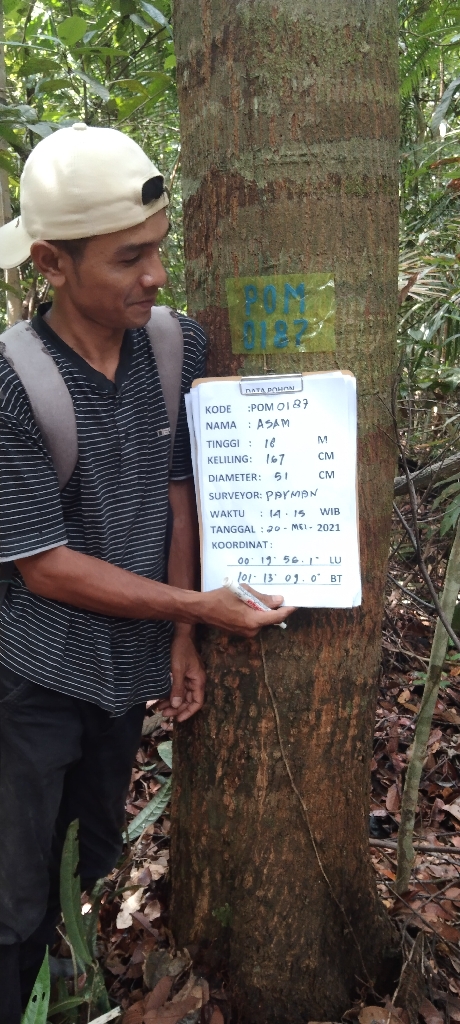 POM
0187
DATA POHON
KODE :POM 0187
NAMA : ASAM
TINGGI : 18 M
KELILING: 167 CM
DIAMETER: 51 CM
SURVEYOR: PAYMAN
WAKTU : 14.15 WIB
TANGGAL : 20-MEI-2021
KOORDINAT:
00° 19' 56.1" LU
101° 13' 09.0" BT